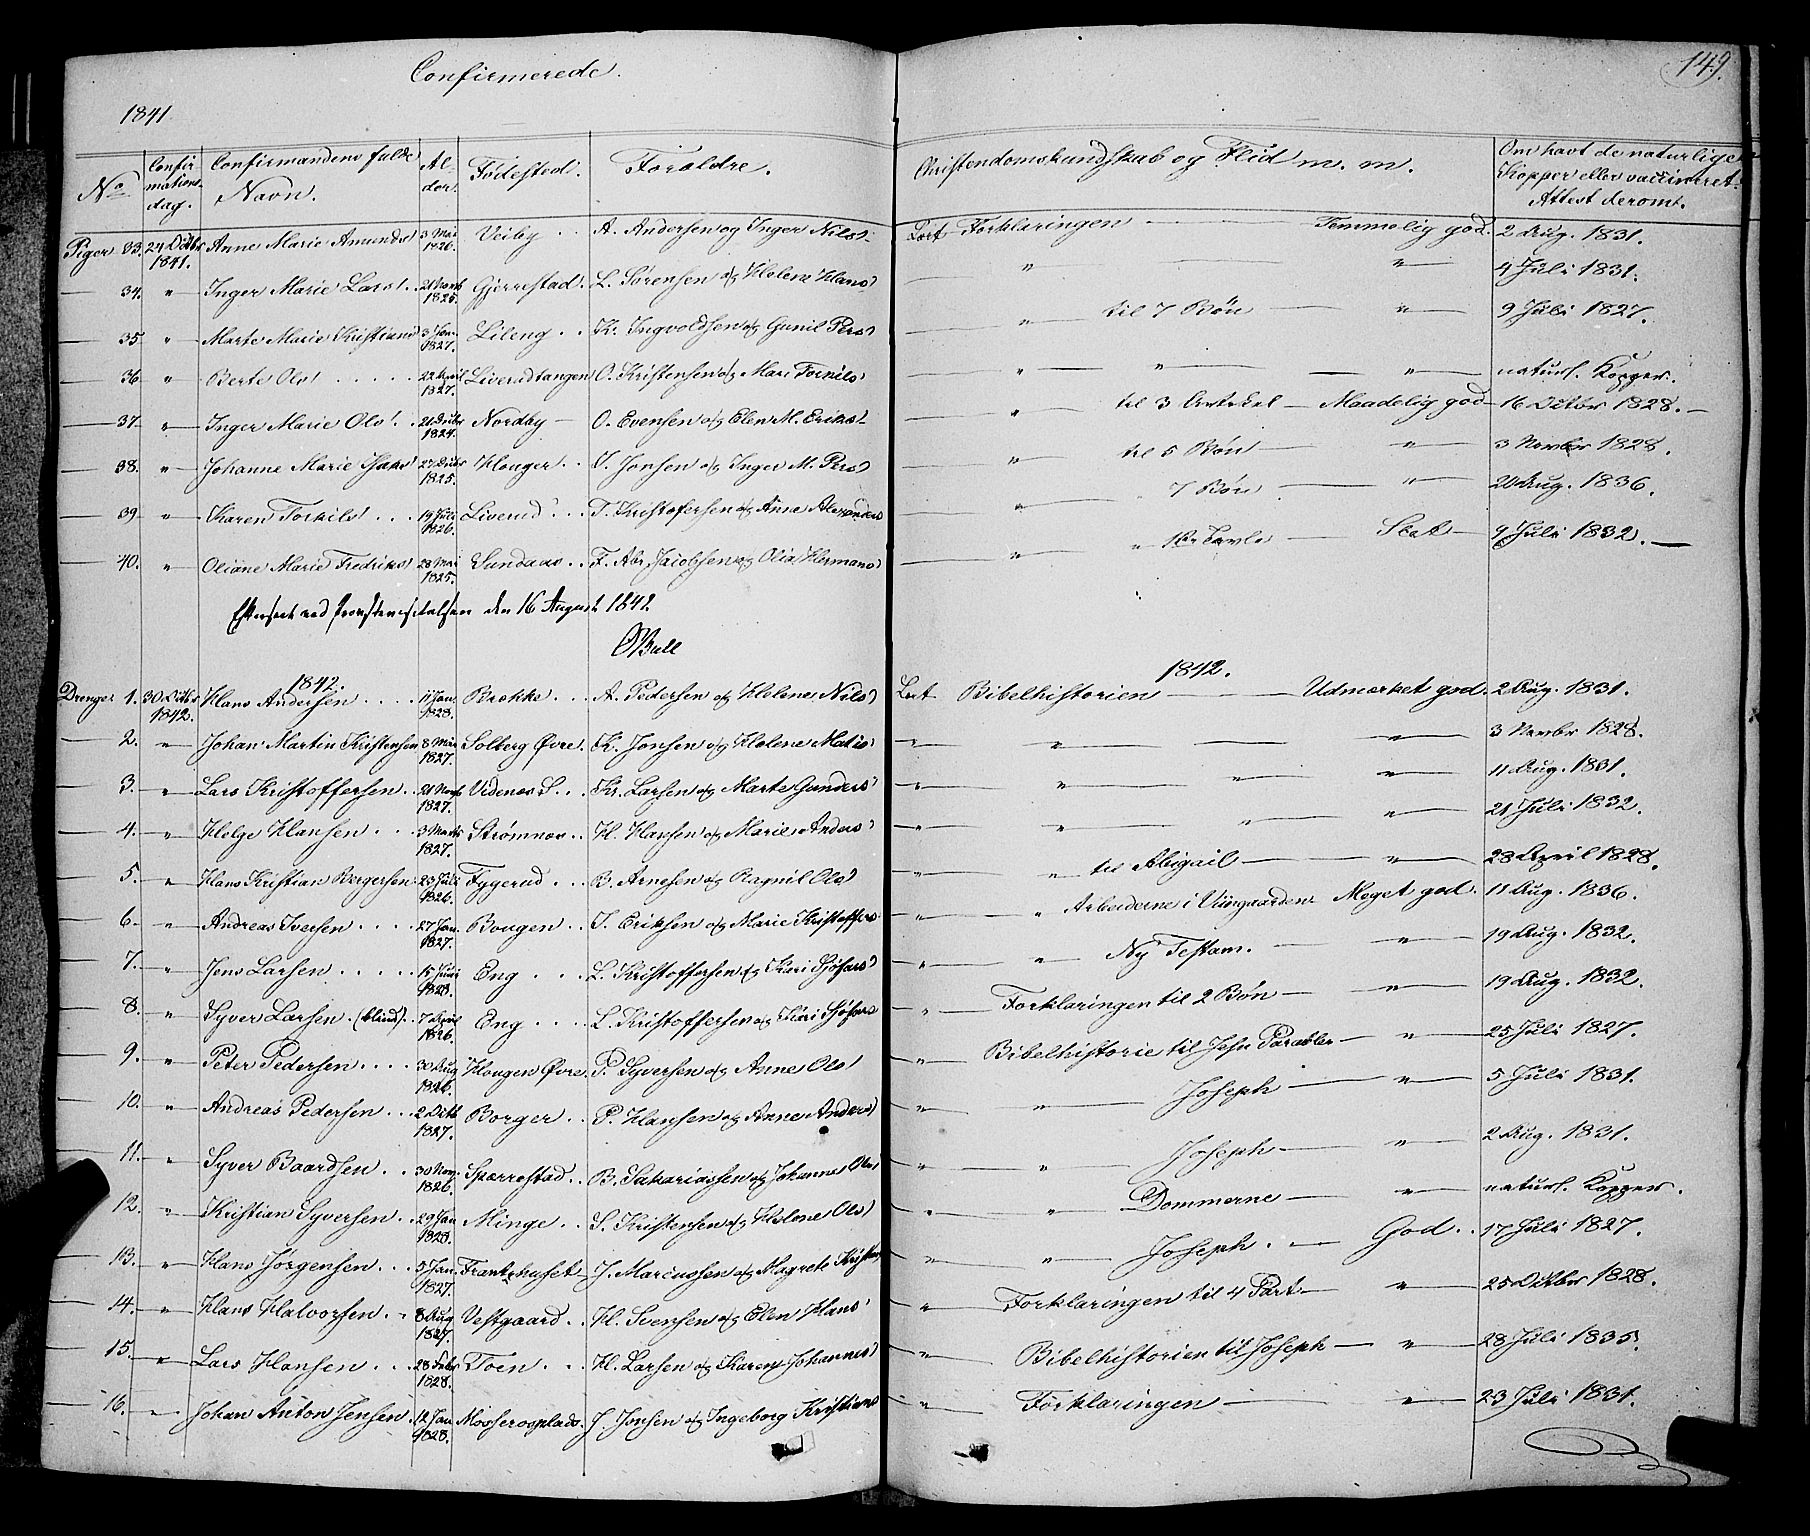 Confirmerede.
149.
1841
No Confirmationsdag. Confirmandens fulde Navn. Alder. Födested. Foraldre. Christendomskundskab og Flid m. m. Om havt de naturlige Kopper eller vaccineret. Attest derom.
Piger 33. 24 Octbr 1841. Anne Marie Amunds 3 Mai 1826. Veiby A. Andersen og Inger Nils Læst Forklaringen Temmelig god. 2 Aug. 1831.
34. " Inger Marie Lars Gjerrestad. L. Sørensen og Helene Hans " " 4 Juli 1831.
35 " Marte Marie Kristians 3 Jan. 1827. Lileng K. Ingvoldsen og Gunil Pers " til 7 Bøn " 9 Juli 1827.
36 " Berte Ols 22 April 1827. Liverudtangen O. Kristensen og Mari " " " naturl. Kopper.
37 " Inger Marie Ols 1824. Nordby O. Evensen og Elen M. Eriks " til 3 Artikel Maadelig god 16 Octbr 1828.
38. " Johanne Marie 1825. Houger J. Jonsen og Inger M. Pers " til 5 Bøn " 3 Novbr 1828.
39 " Karen Torkils 19 Juli 1826. Liverud T. Kristofersen og Anne Alexanders " " 7 Bøn " 20 Aug. 1836.
40. " Oliane Marie Fredriks 28 Mai 1825. Sundaas F. Abr. Jacobsen og Olia Hermans " " Slet 9 Juli 1832.
Efterseet ved Provstevisitatsen den 16 August 1842
OBull
1842. 1842.
Drenge 1. 30 Octbr 1842. Hans Andersen 11 Jan. 1828. Brekke A. Pedersen og Helene Nils Læst Bibelhistorien Udmærket god. 2 Aug. 1831.
2. " Johan Martin Kristensen 8 Mai 1827. Solberg Øvre. K. Jonsen og Helene Matis " " " 3 Novbr 1828.
3. " Lars Kristoffersen 1827. Videnes S. Kr. Larsen og Marte Gunders " " " " 11 Aug. 1831.
4. " Helge Hansen 3 Marts 1827. Strømnes H. Hansen og Marie Anders " " " " 21 Juli 1832.
5. " Hans Kristian Bergersen 23 Juli 1826. Tygerud B. Arnesen og Ragnil Ols " " til Abigail " 28 April 1828.
6. " Andreas Iversen 27 Jan. 1827. Bougen I. Eriksen og Marie Kristoffers " " Arbeiderne i Viingaarden Meget god. 11 Aug. 1836.
7. " Jens Larsen 15 Juni 1828. Eng L. Kristoffersen og Kari Sjøfars " " Ny Testam. " 19 Aug. 1832.
8. " Syver Larsen (blind) 7 1826. Eng L. Kristoffersen og Kari Sjøfars " Forklaringen til 2 Bøn " 19 Aug. 1832.
9. " Peter Pedersen 30 Aug 1826. Hougen Øvre P. Syversen og Anne Ols " Bibelhistorie til Jesu Parabler " 25 Juli 1827.
10. " Andreas Pedersen 2 Octb 1827. Borger P. Hansen og Anne Anders " " Joseph " 5 Juli 1831.
11. " Syver Baardsen 30 Nov. 1826. Sperrestad B. Sakariassen og Johanne Ols " " Joseph " 2 Aug. 1831.
12. " Kristian Syversen 29 Jan 1828. Minge S. Kristensen og Helene Ols " " Dommerne " naturl. Kopper.
13. " Hans Jørgensen 5 Jan. 1827. Frantshuset J. Marcussen og Magrete Kristens " " Joseph. God. 17 Juli 1827.
14. " Hans Halvorsen 8 Aug 1827. Vestgaard H. Svensen og Elen Hans " Forklaringen til 4 Part " 25 Octbr 1828.
15. " Lars Hansen 28 Febr 1828. Toen H. Larsen og Karen Johannes " Bibelhistorien til Joseph " 28 Juli 1835.
16. " Johan Anton Jensen 12 Jan 1828. Mosserosplads J. Jonsen og Ingeborg Kristians " Forklaringen " 23 Juli 1831.